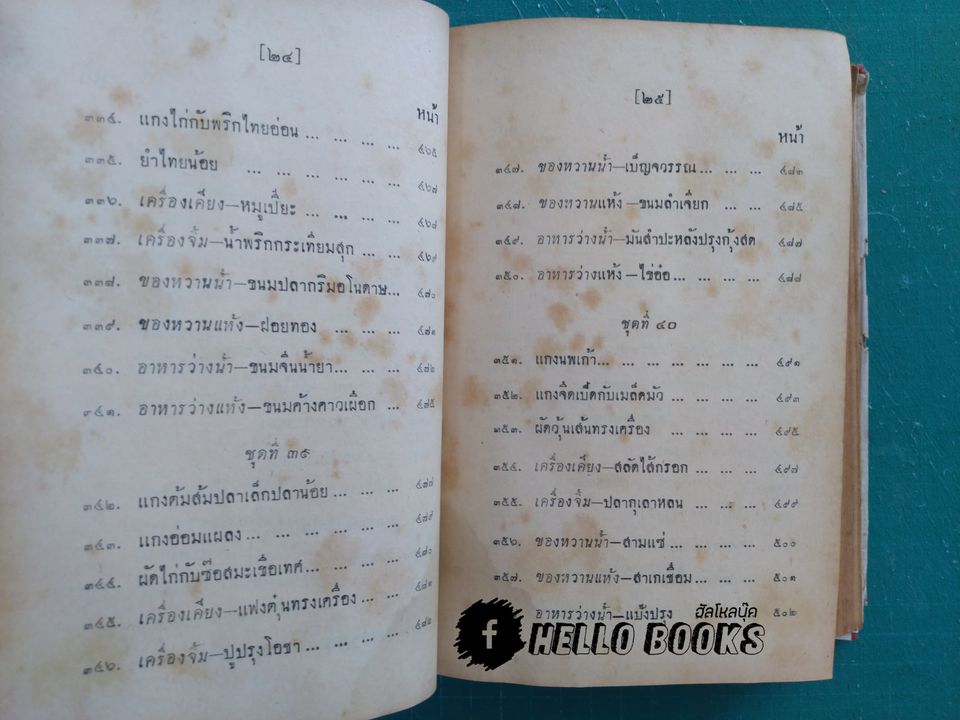 [๒๔]
หน้า
๓๓๔. แกงไก่กับพริกไทยอ่อน ... ... ... ๔๖๕
๓๓๕. ยำไทยน้อย ... ... ... ... ... ... ๔๖๗
๓๓๖. เครื่องเคียง—หมูเปี๊ยะ ... ... ... ... ๔๖๘
๓๓๗. เครื่องจิ้ม—น้ำพริกกระเทียมสุก ... ... ๔๖๙
๓๓๘. ของหวานน้ำ—ขนมปลากริมอโนดาษ... ๔๗๐
๓๓๙. ของหวานแห้ง—ฝอยทอง ... ... ... ๔๗๑
๓๔๐. อาหารว่างน้ำ—ขนมจีนน้ำยา... ... ... ๔๗๒
๓๔๑. อาหารว่างแห้ง—ขนมค้างคาวเผือก ... ๔๗๕
ชุดที่ ๓๙
๓๔๒. แกงต้มส้มปลาเล็กปลาน้อย ... ... ... ๔๗๗
๓๔๓. แกงอ่อมแผลง ... ... ... ... ... ๔๗๙
๓๔๔. ผัดไก่กับซ๊อสมะเขือเทศ... ... ... ... ๔๘๐
๓๔๕. เครื่องเคียง—แฟงตุ๋นทรงเครื่อง ... ... ๔๘๑
๓๔๖. เครื่องจิ้ม—ปูปรุงโอชา ... ... ... ๔๘๒
[๒๕]
หน้า
๓๔๗. ของหวานน้ำ—เบ็ญจวรรณ ... ... ... ๔๘๓
๓๔๘. ของหวานแห้ง—ขนมลำเจียก ... ... ๔๘๕
๓๔๙. อาหารว่างน้ำ—มันสำปะหลังปรุงกุ้งสด ๔๘๗
๓๕๐. อาหารว่างแห้ง—ไข่อ๋อ ... ... ... ... ๔๘๘
ชุดที่ ๔๐
๓๕๑. แกงนพเก้า... ... ... ... ... ... ๔๙๑
๓๕๒. แกงจืดเป็ดกับเมล็ดบัว ... ... ... ... ๔๙๓
๓๕๓. ผัดวุ้นเส้นทรงเครื่อง ... ... ... ... ๔๙๕
๓๕๔. เครื่องเคียง—สลัดไส้กรอก ... ... ... ๔๙๗
๓๕๕. เครื่องจิ้ม—ปลากุเลาหลน ... ... ... ๔๙๙
๓๕๖. ของหวานน้ำ—สามแซ่ ... ... ... ... ๕๐๐
๓๕๗. ของหวานแห้ง—สาเกเชื่อม ... ... ... ๕๐๑
อาหารว่างน้ำ—แป้งปรุง ๕๐๒
ฮัลโหลบุ๊ค
f HELLO BOOKS